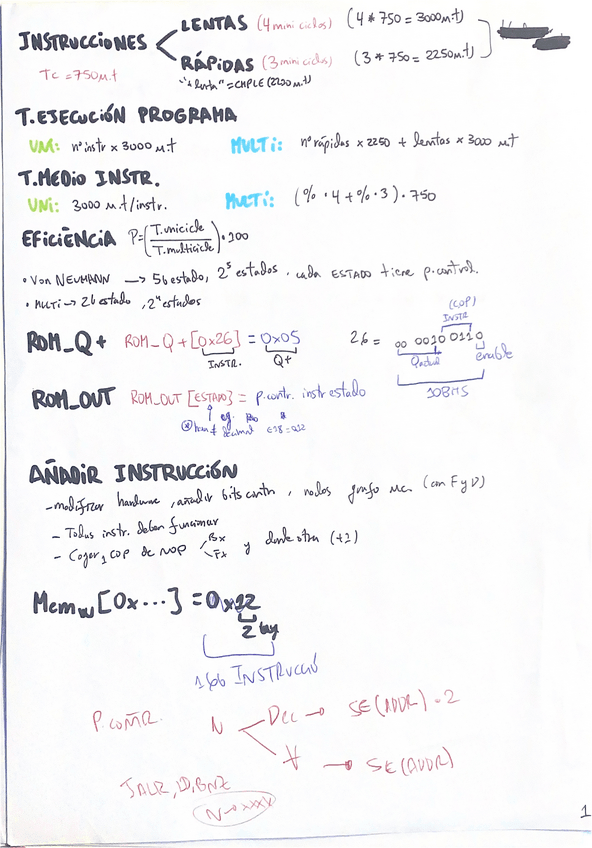 INSTRUCCIONES
LENTAS (4 mini ciclos) (4 * 750 = 3000 u.t)
RÁPIDAS (3 mini ciclos) (3 * 750 = 2250 u.t)
Tc = 750 u.t
T. EJECUCIÓN PROGRAMA
UNI: nº instr x 3000 u.t MULTI: nº rápidas x 2250 + lentas x 3000 u.t
T. MEDIO INSTR.
UNI: 3000 u.t/instr. MULTI: (% · 4 + % · 3) · 750
EFICIÈNCIA P = (T. unicicle / T. multicicle) · 100
• VON NEUMANN → 5b estado, 2⁵ estados, cada ESTADO tiene p. control.
• MULTI → 2b estado, 2⁴ estados
ROM_Q+ ROM_Q+[0x26] = 0x05
INSTR. Q+
26 = 00 0010 0110
(COP)
INSTR
Qactual enable
10BITS
ROM_OUT ROM_OUT [ESTADO] = p. contr. instr estado
AÑADIR INSTRUCCIÓN
- modificar hardware, añadir bits contr, nodos grafo uc. (con F y D)
- Todas instr. deben funcionar
- Coger 1 COP de NOP Bx Fx y donde otra (+1)
Memw[0x...] = 0x12
2
16b INSTRUCCIÓ
P. CONTR. N
Dec → SE(ADDR) · 2
∀ → SE(ADDR)
JALR, BNZ
N → xxxx
1